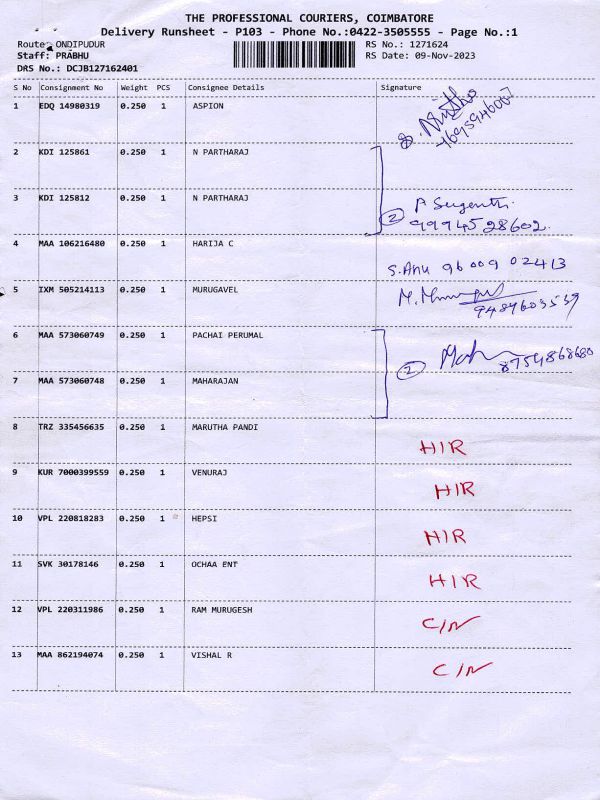 THE PROFESSIONAL COURIERS, COIMBATORE
Delivery Runsheet - P103 - Phone No.:0422-3505555 - Page No.:1
Route: ONDIPUDUR RS No.: 1271624
Staff: PRABHU RS Date: 09-Nov-2023
DRS No.: DCJB127162401
S No Consignment No Weight PCS Consignee Details Signature
1 EDQ 14980319 0.250 1 ASPION
2 KDI 125861 0.250 1 N PARTHARAJ
3 KDI 125812 0.250 1 N PARTHARAJ
2 P Suganthi
9994528602
4 MAA 106216480 0.250 1 HARIJA C
S.Anu 96009 02413
5 IXM 505214113 0.250 1 MURUGAVEL
9489603539
6 MAA 573060749 0.250 1 PACHAI PERUMAL
2 8754868680
7 MAA 573060748 0.250 1 MAHARAJAN
8 TRZ 335456635 0.250 1 MARUTHA PANDI HIR
9 KUR 7000399559 0.250 1 VENURAJ HIR
10 VPL 220818283 0.250 1 HEPSI HIR
11 SVK 30178146 0.250 1 OCHAA ENT HIR
12 VPL 220311986 0.250 1 RAM MURUGESH C/N
13 MAA 862194074 0.250 1 VISHAL R C/N